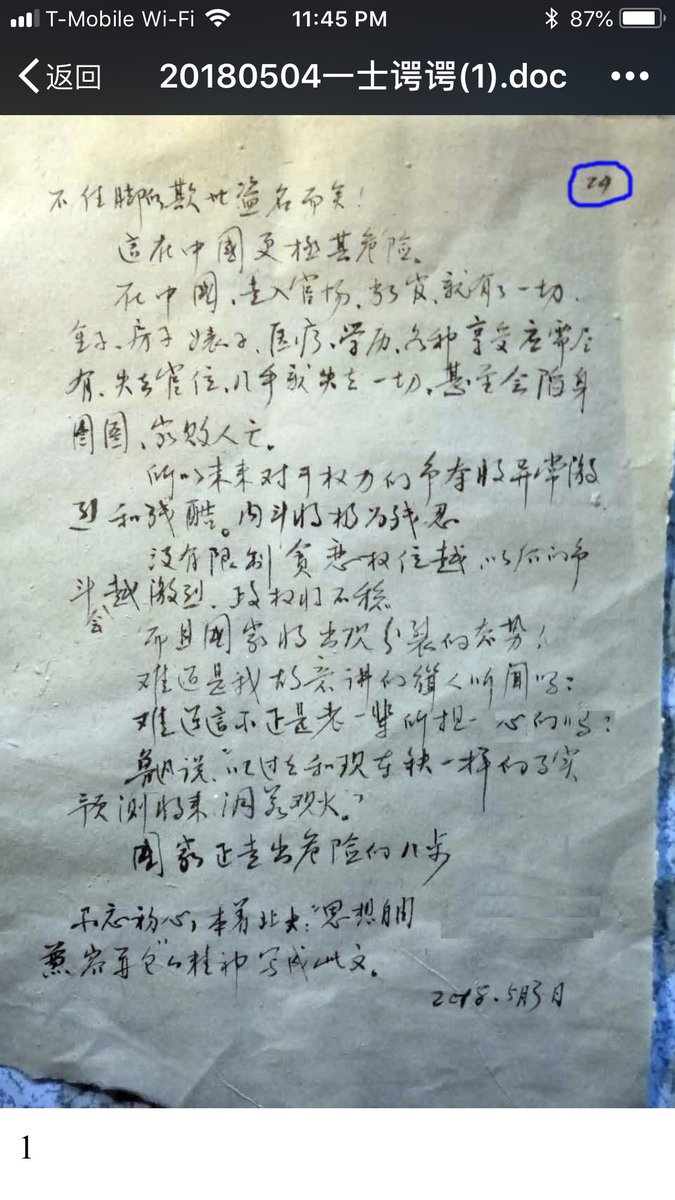 T-Mobile Wi-Fi 11:45 PM 87%
返回 20180504一士谔谔(1).doc •••
24
不住脚的欺世盗名而矣!
這在中國更極其危险。
在中國,走入官场,发,就有了一切.
金子、房子婊子、医疗、学历、各种享受应需尽
有、失去官位,几乎就失去一切,甚至会陷身
囹圄、家败人亡。
所以未来对于权力的争夺将异常激
烈和残酷。内斗将极为残忍
没有限制 贪恋权位越,以后的争
斗会越激烈,政权将不稳
而且國家将出现分裂的态势!
难道是我故意讲的耸人听闻吗?
难道這不正是老一辈所担心的吗?
鲁迅说:"以过去和现在铁一样的事实
预测将来洞若观火。"
國家正走出危险的几步
不忘初心,本着北大:"思想自由
兼容并包"的精神写成此文。
2018.5月3日
1